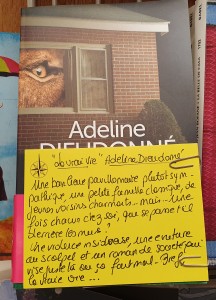 Adeline
DIEUDONNÉ
"La vraie vie" Adeline Dieudonné
Une banlieue pavillonnaire plutôt sym-
pathique, une petite famille classique, de
jeunes voisins charmants... mais... une
fois chacun chez soi, que se passe t-il
derrière les murs ?
Une violence insidieuse, une écriture
au scalpel et un roman de société qui
vise juste là où ça fait mal - Bref
la vraie vie ...